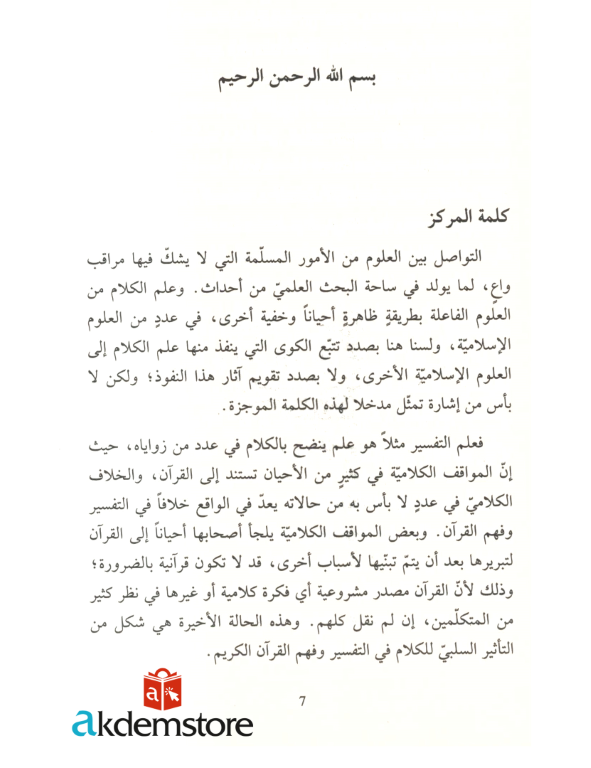 بسم الله الرحمن الرحيم
كلمة المركز
التواصل بين العلوم من الأمور المسلّمة التي لا يشكّ فيها مراقب
واعٍ، لما يولد في ساحة البحث العلميّ من أحداث. وعلم الكلام من
العلوم الفاعلة بطريقةٍ ظاهرةٍ أحياناً وخفية أخرى، في عددٍ من العلوم
الإسلاميّة، ولسنا هنا بصدد تتبّع الكوى التي ينفذ منها علم الكلام إلى
العلوم الإسلاميّة الأخرى، ولا بصدد تقويم آثار هذا النفوذ؛ ولكن لا
بأس من إشارة تمثّل مدخلا لهذه الكلمة الموجزة.
فعلم التفسير مثلاً هو علم ينضح بالكلام في عدد من زواياه، حيث
إنّ المواقف الكلاميّة في كثيرٍ من الأحيان تستند إلى القرآن، والخلاف
الكلاميّ في عددٍ لا بأس به من حالاته يعدّ في الواقع خلافاً في التفسير
وفهم القرآن. وبعض المواقف الكلاميّة يلجأ أصحابها أحياناً إلى القرآن
لتبريرها بعد أن يتمّ تبنّيها لأسباب أخرى، قد لا تكون قرآنية بالضرورة؛
وذلك لأنّ القرآن مصدر مشروعية أي فكرة كلامية أو غيرها في نظر كثير
من المتكلّمين، إن لم نقل كلهم. وهذه الحالة الأخيرة هي شكل من
التأثير السلبيّ للكلام في التفسير وفهم القرآن الكريم.
7
a
akdemstore